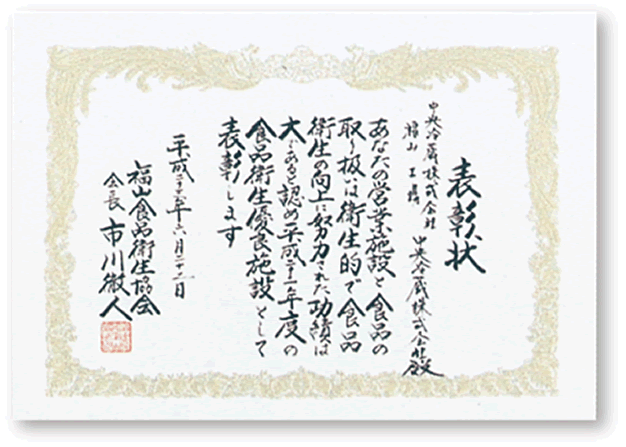 表彰状
中央冷蔵株式会社
福山工場
中央冷蔵株式会社殿
あなたの営業施設と食品の
取り扱は衛生的で食品
衛生の向上に努力された功績は
大であると認め平成二十一年度の
食品衛生優良施設として
表彰します
平成二十一年六月二十二日
福山食品衛生協会
会長 市川徹人